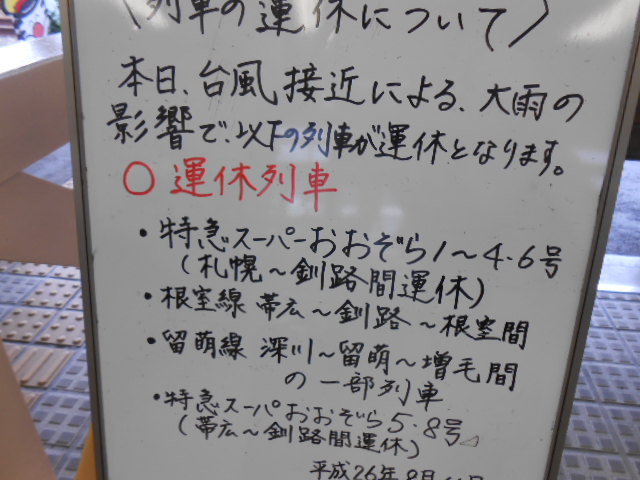 (列車の運休について)
本日、台風接近による、大雨の
影響で、以下の列車が運休となります。
○運休列車
・特急スーパーおおぞら1〜4・6号
(札幌〜釧路間運休)
・根室線 帯広〜釧路〜根室間
・留萌線 深川〜留萌〜増毛間
の一部列車
・特急スーパおおぞら5・8号
(帯広〜釧路間運休)
平成26年8月